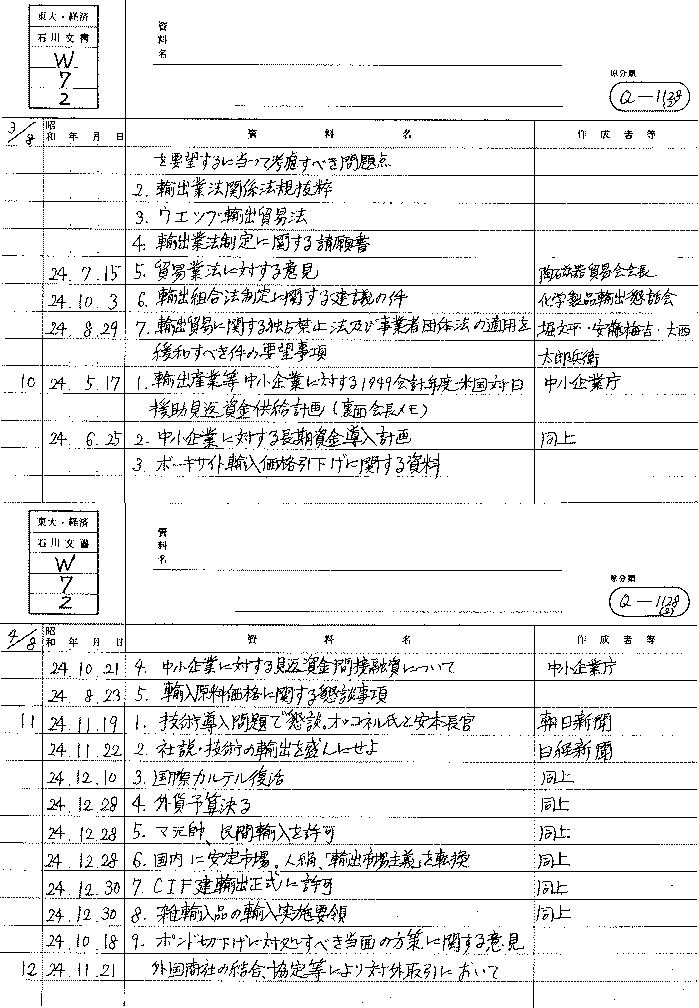 東大・経済
石川文書
W
7
2
資料名
原分類
Q-1128
3/8 昭和 年 月 日 資料名 作成者等
を要望するに当って考慮すべき問題点
2. 輸出業法関係法規抜粋
3. ウエッブ輸出貿易法
4. 輸出業法制定に関する請願書
24. 7. 15 5. 貿易業法に対する意見 陶磁器貿易会会長
24. 10. 3 6. 輸出組合法制定に関する建議の件 化学製品輸出懇話会
24. 8. 29 7. 輸出貿易に関する独占禁止法及び事業者団体法の適用を 堀文平・安藤梅吉・大西
緩和すべき件の要望事項 太郎兵衛
10 24. 5. 17 1. 輸出産業等中小企業に対する1949会計年度米国対日 中小企業庁
援助見返資金供給計画(裏面会長メモ)
24. 6. 25 2. 中小企業に対する長期資金導入計画 同上
3. ボーキサイト輸入価格引下げに関する資料
東大・経済
石川文書
W
7
2
資料名
原分類
Q-1128
(2)
4/8 昭和 年 月 日 資料名 作成者等
24. 10. 21 4. 中小企業に対する見返資金間接融資について 中小企業庁
24. 8. 23 5. 輸入原料価格に関する懇談事項
11 24. 11. 19 1. 技術導入問題で懇談。オッコネル氏と安本長官 朝日新聞
24. 11. 22 2. 社説・技術の輸出を盛んにせよ 日経新聞
24. 12. 10 3. 国際カルテル復活 同上
24. 12. 28 4. 外貨予算決る 同上
24. 12. 28 5. マ元帥、民間輸入を許可 同上
24. 12. 28 6. 国内に安定市場。人絹、「輸出市場主義」を転換 同上
24. 12. 30 7. CIF建輸出正式に許可 同上
24. 12. 30 8. 雑輸入品の輸入実施要領 同上
24. 10. 18 9. ポンド切下げに対処すべき当面の方策に関する意見
12 24. 11. 21 外国商社の結合、協定等により対外取引において